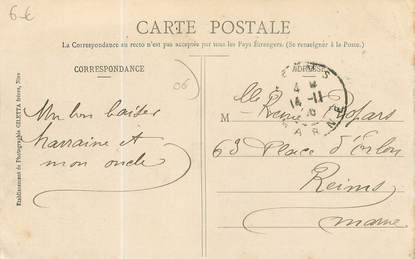 6-€
CARTE POSTALE
La Correspondance au recto n'est pas acceptée par tous les Pays Étrangers. (Se renseigner à la Poste.)
CORRESPONDANCE
ADRESSE
06
Un bon baiser
Marraine et
mon oncle
Mlle Reine
63 Place d'Erlon
Reims
Marne
REIMS
14-11
MARNE
Etablissement de Photographie GILETTA frères, Nice